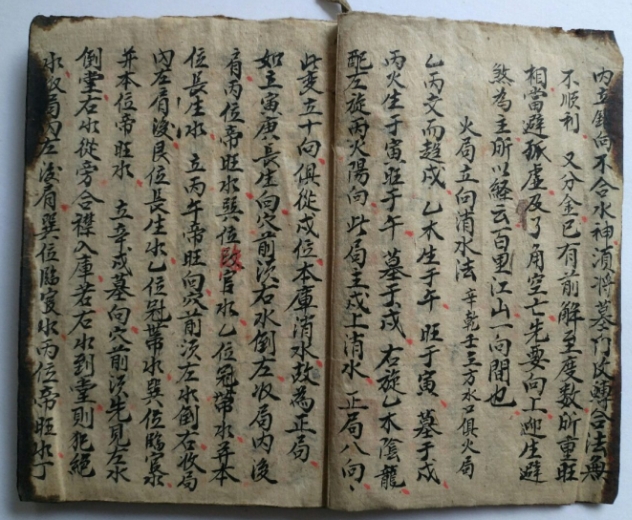 内立錯向不合水神須將墓門改轉合法無
不順利 又分金已有前解至度數所重旺
相當避孤虛及了角空亡先要向上迎生避
煞為主所以經云百里江山一向間也
火局立向消水法 辛乾壬三方水口俱火局
乙丙交而趋戍 乙木生于午 旺于寅 墓于戍
丙火生于寅旺于午 墓于戍 右旋乙木陰龍
配左旋丙火陽向 此局主戍上消水 正局八向
此变立十向俱從戍位本庫消水故為正局
如立寅庚長生向穴前須右水倒左收局内後
肩丙位帝旺水巽位官水乙位冠帶水并本
位長生水 立丙午帝旺向穴前須左水倒右收局
内左肩後艮位長生水乙位冠帶水巽位臨官水
并本位帝旺水 立辛戍墓向穴前須先見左水
倒堂右水從旁合襟入庫若右水到堂則犯絕
水收局内左後肩巽位臨官水丙位帝旺水丁